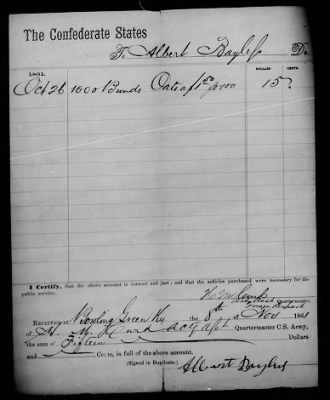 The Confederate States
To Albert Bayless Dr.
DOLLARS CENTS.
1861.
Oct 26 1000 Pounds Oats 15
I Certify, that the above account is correct and just; and that the articles purchased were necessary for the
public service.
Quartermaster
RECEIVED at Bowling Green Ky the 8th of Nov 1861
of Quartermaster C.S. Army,
the sum of Fifteen Dollars
and Cts, in full of the above account.
(Signed in Duplicate.)
Albert Bayless